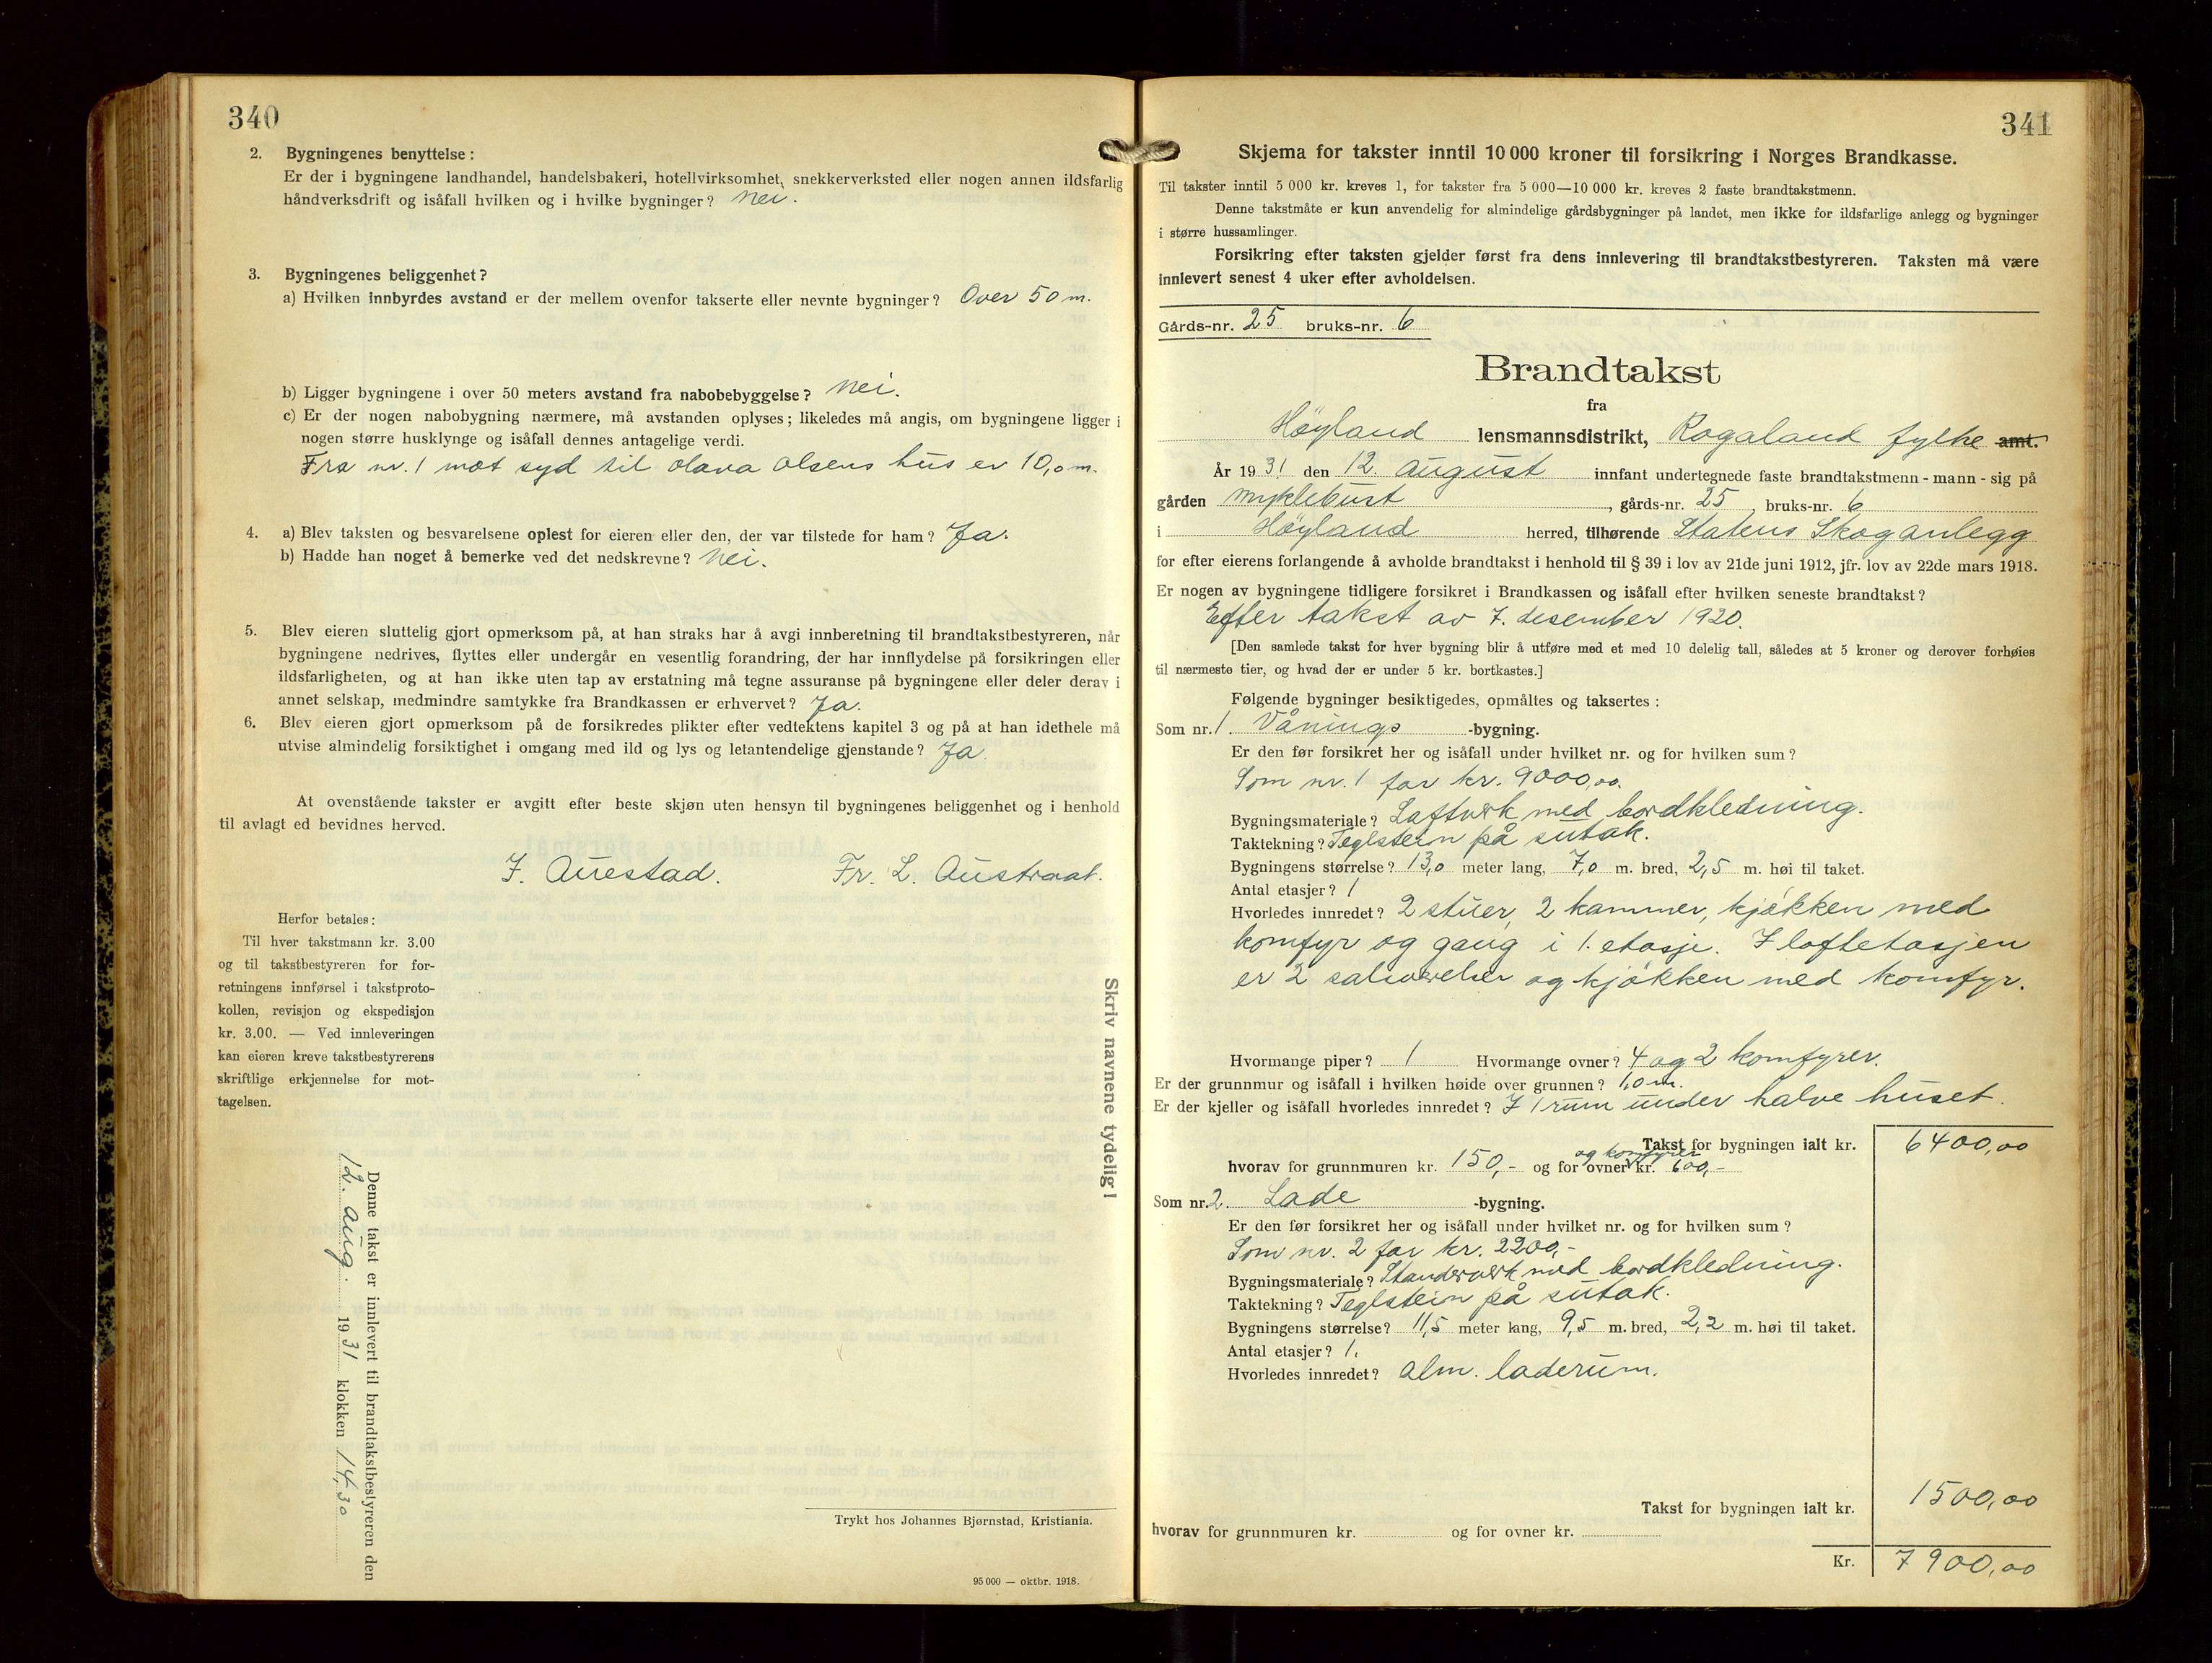 340
2. Bygningenes benyttelse:
Er der i bygningene landhandel, handelsbakeri, hotellvirksomhet, snekkerverksted eller nogen annen ildsfarlig
håndverksdrift og isåfall hvilken og i hvilke bygninger? Nei.
3. Bygningenes beliggenhet?
a) Hvilken innbyrdes avstand er der mellem ovenfor takserte eller nevnte bygninger? Over 50 m.
b) Ligger bygningene i over 50 meters avstand fra nabobebyggelse? Nei.
c) Er der nogen nabobygning nærmere, må avstanden oplyses; likeledes må angis, om bygningene ligger i
nogen større husklynge og isåfall dennes antagelige verdi.
Fra nr. 1 mot syd til Olava Olsens hus er 10,0 m.
4. a) Blev taksten og besvarelsene oplest for eieren eller den, der var tilstede for ham? Ja.
b) Hadde han noget å bemerke ved det nedskrevne? Nei.
5. Blev eieren sluttelig gjort opmerksom på, at han straks har å avgi innberetning til brandtakstbestyreren, når
bygningene nedrives, flyttes eller undergår en vesentlig forandring, der har innflydelse på forsikringen eller
ildsfarligheten, og at han ikke uten tap av erstatning må tegne assuranse på bygningene eller deler derav i
annet selskap, medmindre samtykke fra Brandkassen er erhvervet? Ja.
6. Blev eieren gjort opmerksom på de forsikredes plikter efter vedtektens kapitel 3 og på at han idethele må
utvise almindelig forsiktighet i omgang med ild og lys og letantendelige gjenstande? Ja.
At ovenstående takster er avgitt efter beste skjøn uten hensyn til bygningenes beliggenhet og i henhold
til avlagt ed bevidnes herved.
J. Auestad. Fr. L. Austraat.
Herfor betales:
Til hver takstmann kr. 3.00
og til takstbestyreren for for-
retningens innførsel i takstproto-
kollen, revisjon og ekspedisjon
kr. 3.00. — Ved innleveringen
kan eieren kreve takstbestyrerens
skriftlige erkjennelse for mot-
tagelsen.
Skriv navnene tydelig!
Denne takst er innlevert til brandtakstbestyreren den
12. aug. 1931 klokken 14,30
Trykt hos Johannes Bjørnstad, Kristiania.
95 000 — oktbr. 1918.
341
Skjema for takster inntil 10 000 kroner til forsikring i Norges Brandkasse.
Til takster inntil 5 000 kr. kreves 1, for takster fra 5 000—10 000 kr. kreves 2 faste brandtakstmenn.
Denne takstmåte er kun anvendelig for almindelige gårdsbygninger på landet, men ikke for ildsfarlige anlegg og bygninger
i større hussamlinger.
Forsikring efter taksten gjelder først fra dens innlevering til brandtakstbestyreren. Taksten må være
innlevert senest 4 uker efter avholdelsen.
Gårds-nr. 25 bruks-nr. 6
Brandtakst
fra
Høyland lensmannsdistrikt, Rogaland fylke amt.
År 1931 den 12. august innfant undertegnede faste brandtakstmenn - mann - sig på
gården Myklebust, gårds-nr. 25, bruks-nr. 6
i Høyland herred, tilhørende Statens Skoganlegg
for efter eierens forlangende å avholde brandtakst i henhold til § 39 i lov av 21de juni 1912, jfr. lov av 22de mars 1918.
Er nogen av bygningene tidligere forsikret i Brandkassen og isåfall efter hvilken seneste brandtakst?
Efter takst av 7. desember 1920.
[Den samlede takst for hver bygning blir å utføre med et med 10 delelig tall, således at 5 kroner og derover forhøies
til nærmeste tier, og hvad der er under 5 kr. bortkastes.]
Følgende bygninger besiktigedes, opmåltes og taksertes:
Som nr. 1. Vånings -bygning.
Er den før forsikret her og isåfall under hvilket nr. og for hvilken sum?
Som nr. 1 for kr. 9000,00.
Bygningsmateriale? Laftverk med bordkledning.
Taktekning? Teglstein på sutak.
Bygningens størrelse? 13,0 meter lang, 7,0 m. bred, 2,5 m. høi til taket.
Antal etasjer? 1
Hvorledes innredet? 2 stuer, 2 kammer, kjøkken med
komfyr og gang i 1. etasje. I loftetasjen
er 2 salsværelser og kjøkken med komfyr.
Hvormange piper? 1 Hvormange ovner? 4 og 2 komfyrer.
Er der grunnmur og isåfall i hvilken høide over grunnen? 1,0 m.
Er der kjeller og isåfall hvorledes innredet? I 1 rum under halve huset.
Takst for bygningen ialt kr. 6400,00
og komfyrer
hvorav for grunnmuren kr. 150,- og for ovner kr. 600,-
Som nr. 2. Lade -bygning.
Er den før forsikret her og isåfall under hvilket nr. og for hvilken sum?
Som nr. 2 for kr. 2200,-
Bygningsmateriale? Standerverk med bordkledning.
Taktekning? Teglstein på sutak.
Bygningens størrelse? 11,5 meter lang, 9,5 m. bred, 2,2 m. høi til taket.
Antal etasjer? 1.
Hvorledes innredet? Alm. laderum.
Takst for bygningen ialt kr. 1500,00
hvorav for grunnmuren kr. og for ovner kr.
Kr. 7900,00